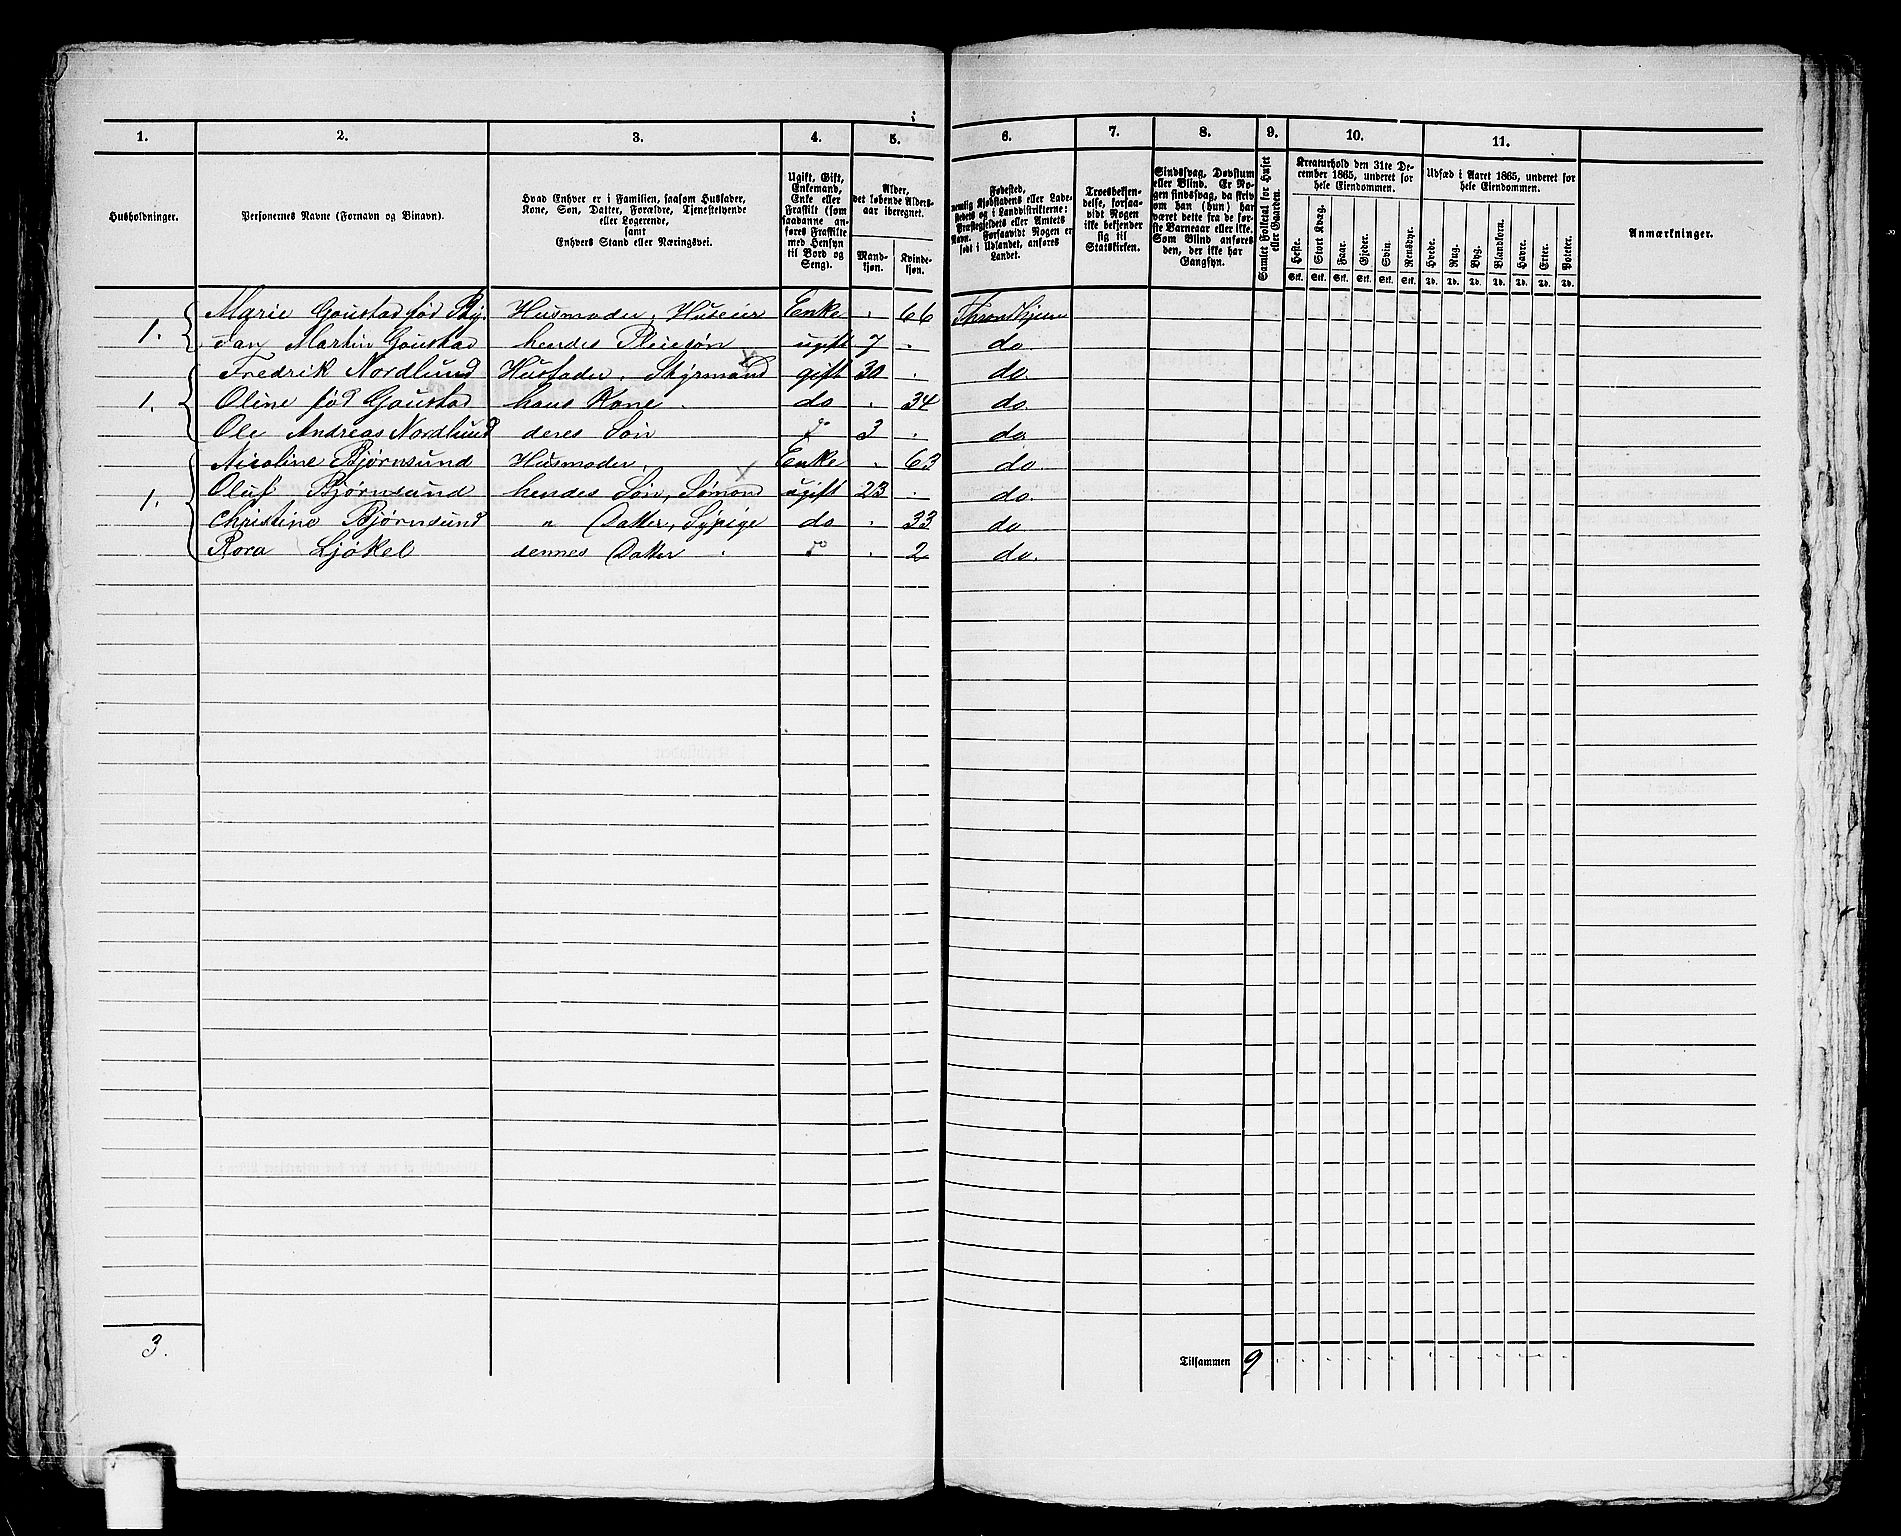 1. 2. 3. 4. 5. 6. 7. 8. 9. 10. 11.
Husholdninger.
Personernes Navne (Fornavn og Binavn).
Hvad Enhver er i Familien, saasom Husfader,
Kone, Søn, Datter, Forældre, Tjenestetyende
eller Logerende,
samt
Enhvers Stand eller Næringsvei.
Ugift, Gift,
Enkemand,
Enke eller
Fraskilt (som
saadanne an-
føres Fraskilte
med Hensyn
til Bord og
Seng).
Alder,
det løbende Alders-
aar iberegnet.
Mand-
kjøn.
Kvinde-
kjøn.
Fødested,
nemlig Kjøbstadens eller Lade-
stedets og i Landdistrikterne:
Præstegjeldets eller Amtets
Navn. Forsaavidt Nogen er
født i Udlandet, anføres
Landet.
Troesbekjen-
delse, forsaa-
vidt Nogen
ikke bekjender
sig til
Statskirken.
Sindssvag, Døvstum
eller Blind. Er No-
gen sindssvag, da skriv
om han (hun) har
været dette fra de før-
ste Barneaar eller ikke.
Som Blind anføres
den, der ikke har
Gangsyn.
Samlet Folketal for Huset
eller Gaarden.
Kreaturhold den 31te De-
cember 1865, underet for
hele Eiendommen.
Heste. Stort Kvæg. Faar. Gjeder. Svin. Rensdyr.
Stk. Stk. Stk. Stk. Stk. Stk.
Udsæd i Aaret 1865, underet for
hele Eiendommen.
Hvede. Rug. Byg. Blandkorn. Havre. Erter. Poteter.
Td. Td. Td. Td. Td. Td. Td.
Anmærkninger.
1. Marie Goustad fød Husmoder, Huseier Enke . 66 Throndhjem
Martin Goustad hendes Pleiesøn ugift 7 . do
1. Fredrik Nordlund Husfader, Styrmand gift 30 . do.
Oline fød Goustad hans Kone . do . 34 do
Ole Andreas Nordlund deres Søn 3 . do
1. Nicoline Bjørnsund Husmoder, Enke . 63 do
Oluf Bjørnsund hendes Søn, Sømand ugift 23 . do
Christine Bjørnsund " Datter, Sypige do . 33 do
Ljøkel dennes Datter . . 2 do.
3.
Tilsammen 9